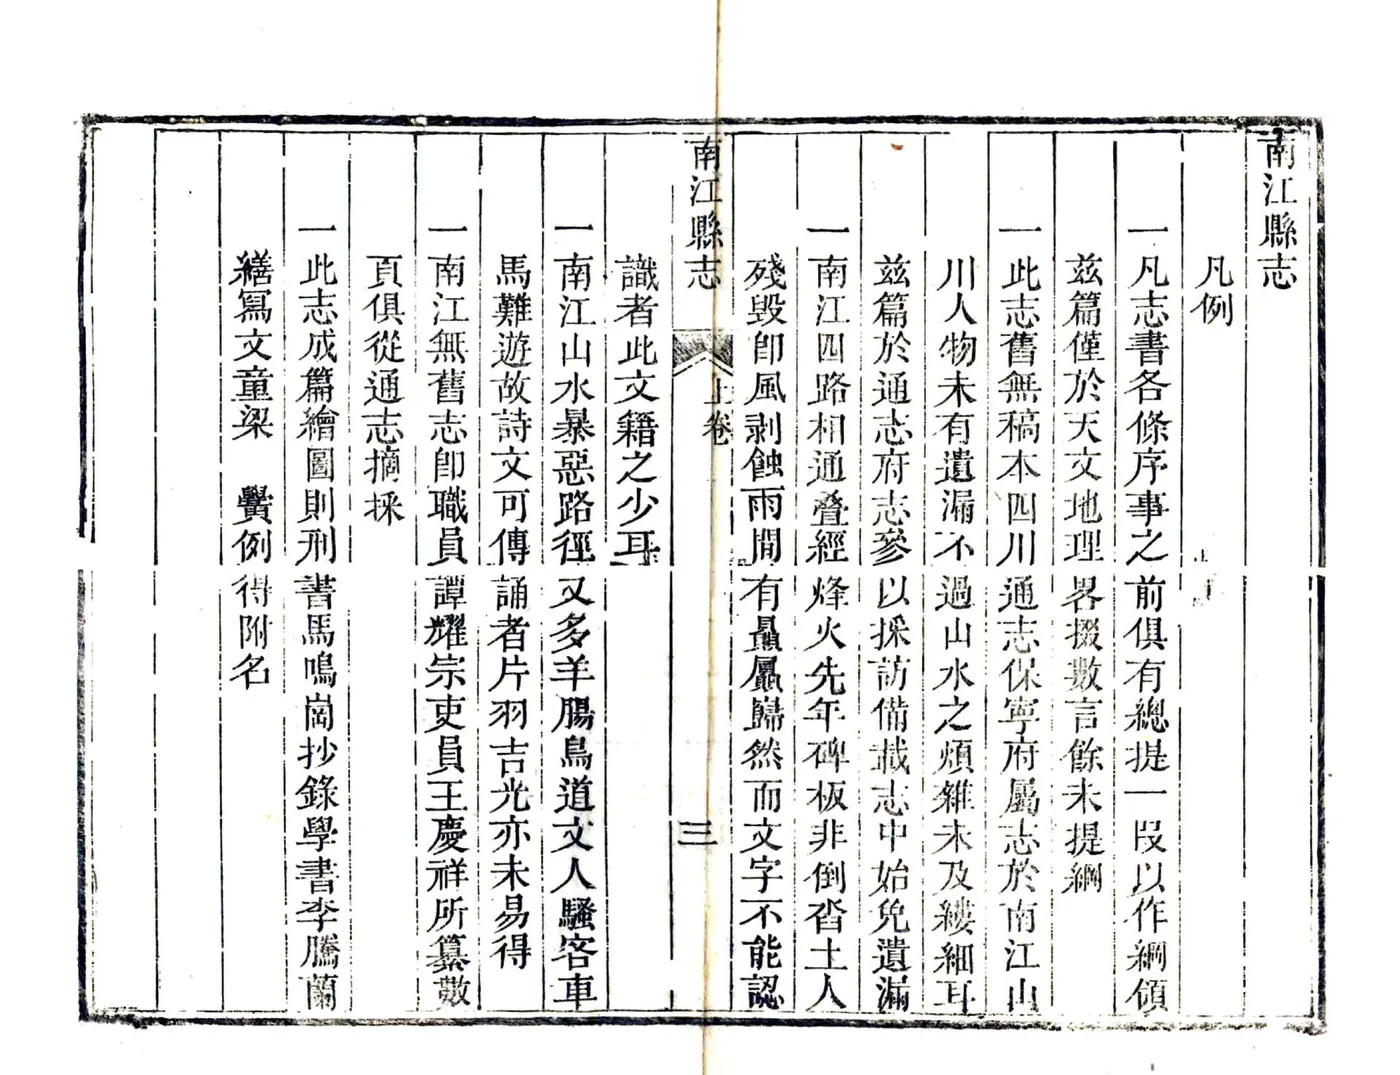 南江縣志
凡例
一凡志書各條序事之前俱有總提一段以作綱領
茲篇僅於天文地理畧掇數言餘未提綱
一此志舊無稿本四川通志保寧府屬志於南江山
川人物未有遺漏不過山水之煩雜未及縷細耳
茲篇於通志府志參以採訪備載志中始免遺漏
一南江四路相通叠經烽火先年碑板非倒沓土人
殘毀卽風剥蝕雨間有贔屭巋然而文字不能認
南江縣志
上卷
三
識者此文籍之少耳
一南江山水暴惡路徑又多羊腸鳥道文人騷客車
馬難遊故詩文可傳誦者片羽吉光亦未易得
一南江無舊志卽職員譚耀宗吏員王慶祥所纂數
頁俱從通志摘採
一此志成篇繪圖則刑書馬鳴崗抄錄學書李騰蘭
繕寫文童梁 黌例得附名